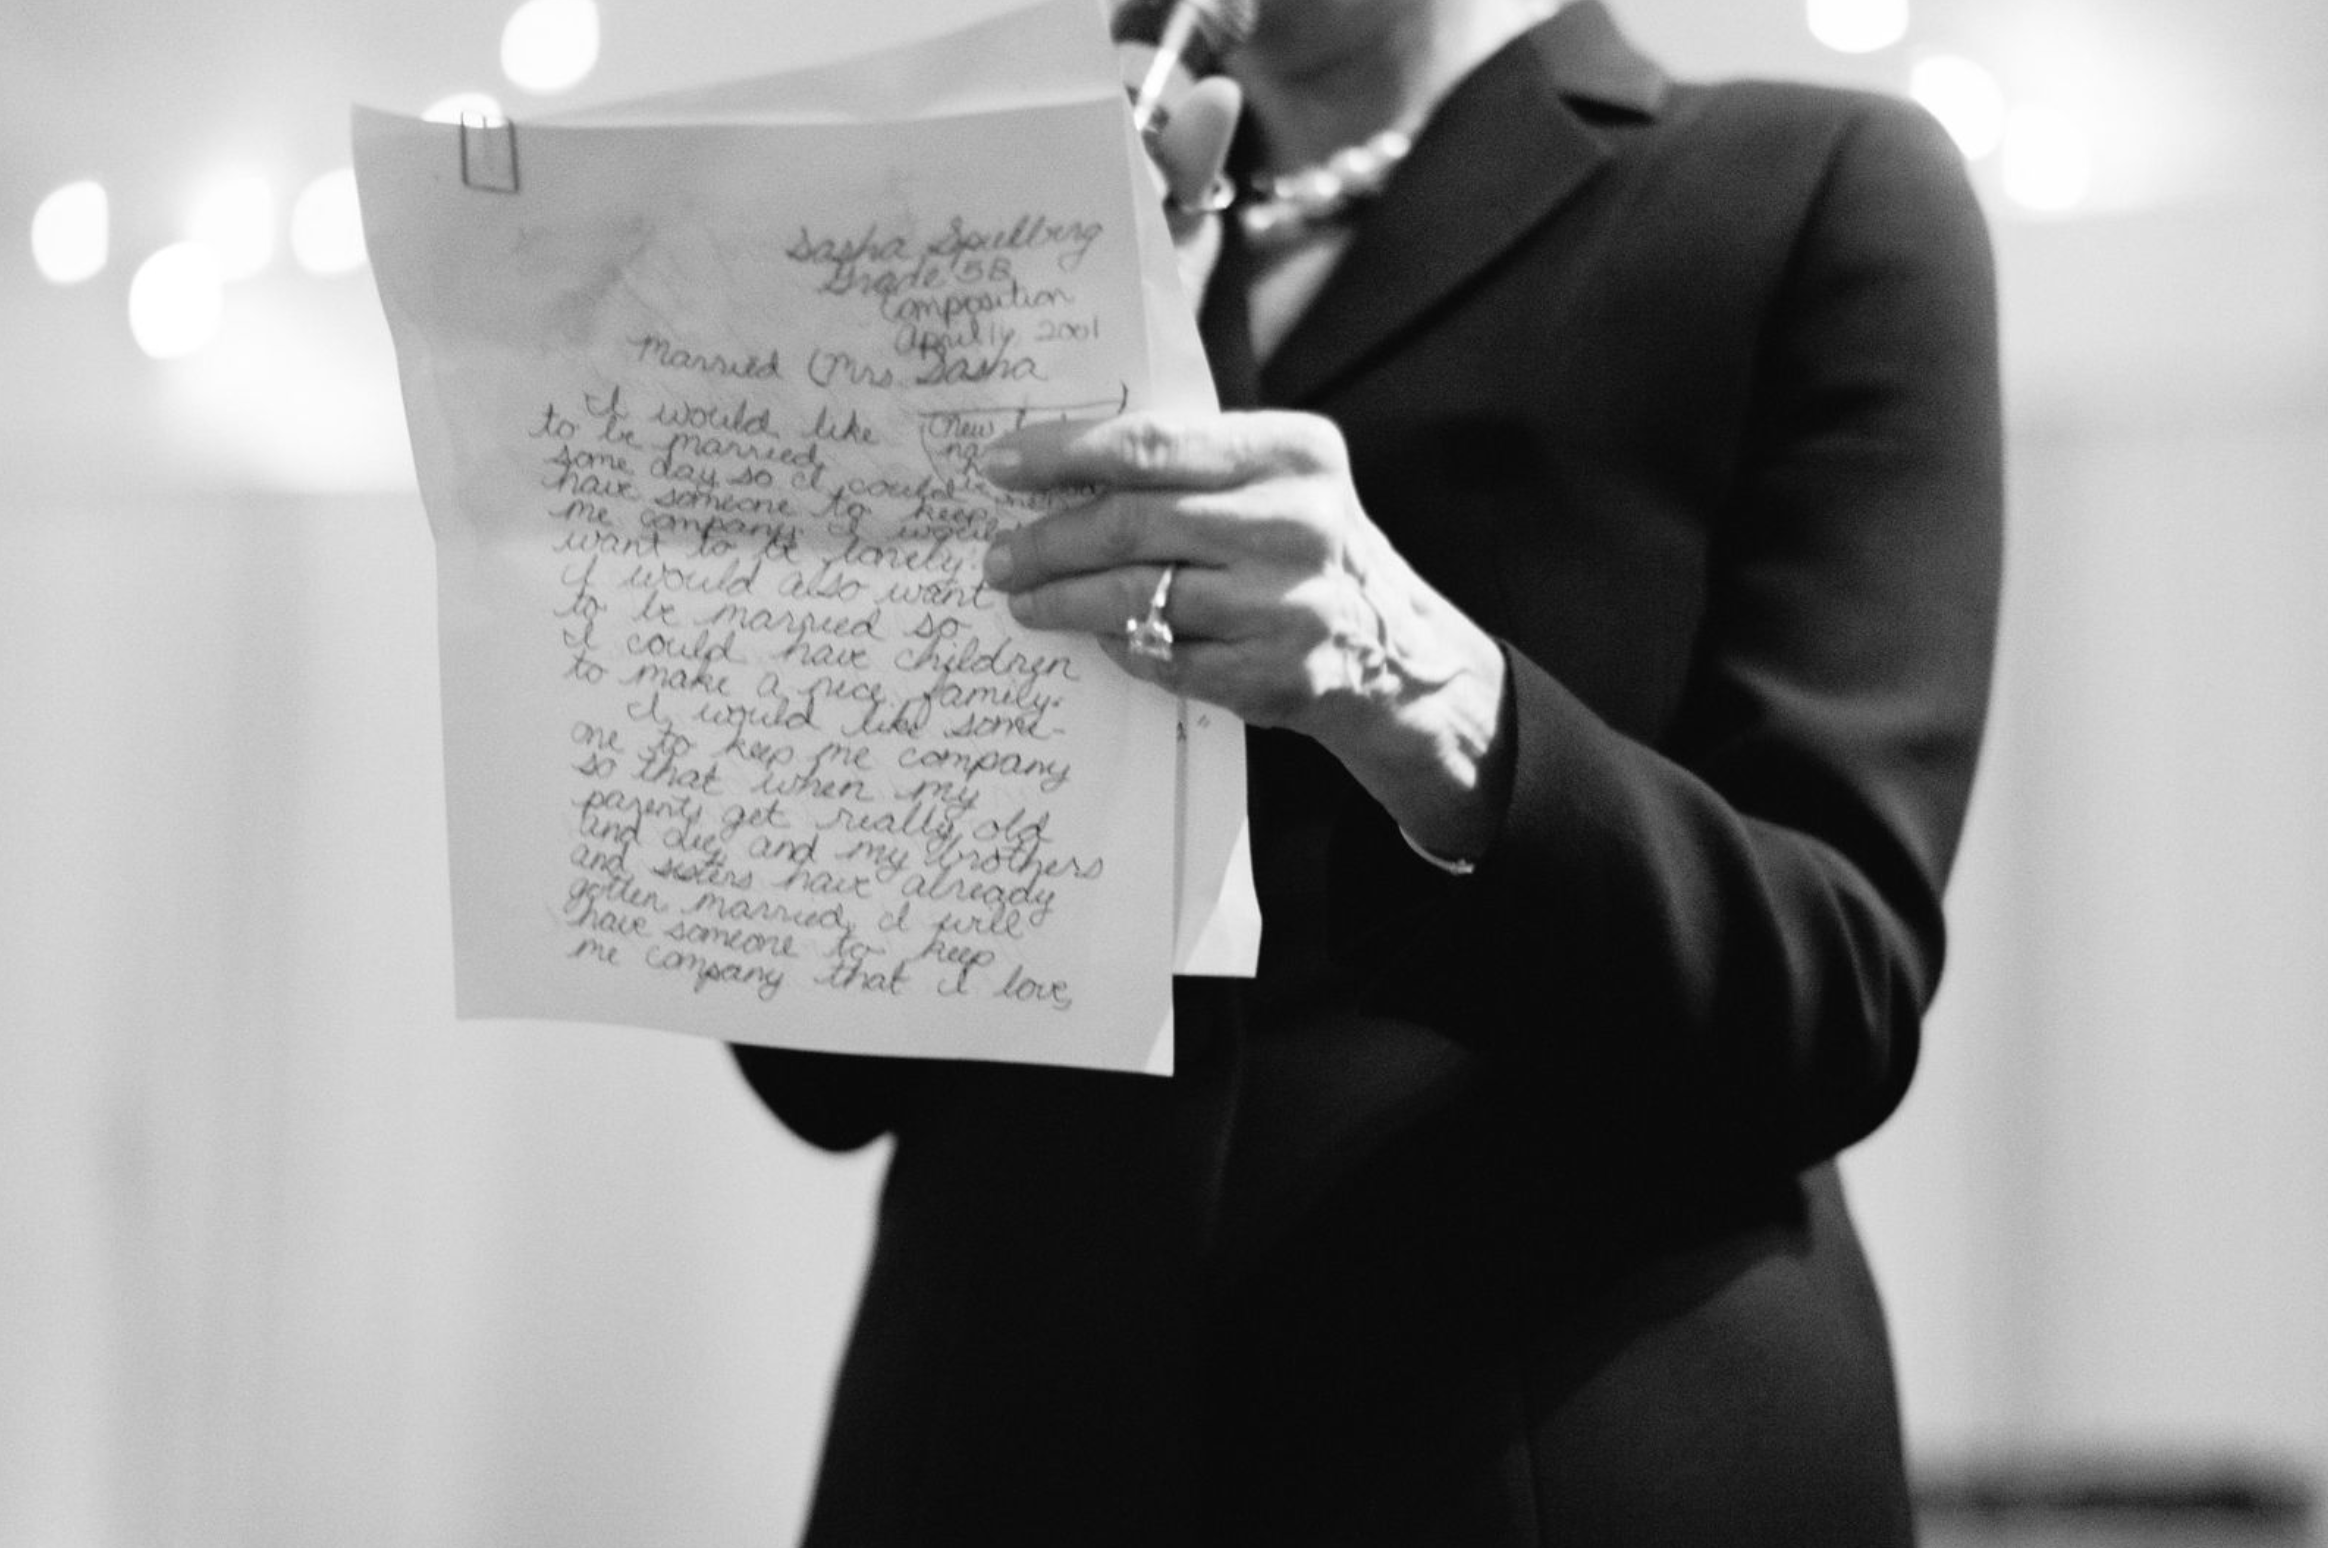 Sasha Spielberg
Grade 5B
Composition
April 14 2001
Married (Mrs Sasha
)
I would like (new
to be married
some day so I could
have someone to keep
me company. I
want to be lonely.
I would also want
to be married so
I could have children
to make a nice family.
I would like some-
one to keep me company
so that when my
parents get really old
and die, and my brothers
and sisters have already
gotten married, I will
have someone to keep
me company that I love,